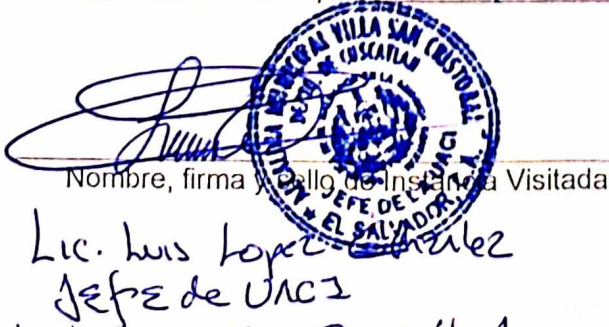 ALCALDIA MUNICIPAL VILLA SAN CRISTOBAL
DEPTO. DE CUSCATLAN
JEFE DE LA UACI
EL SALVADOR, C.A.
Nombre, firma y sello de Instancia Visitada
Lic. Luis Lopez
Jefe de UACI